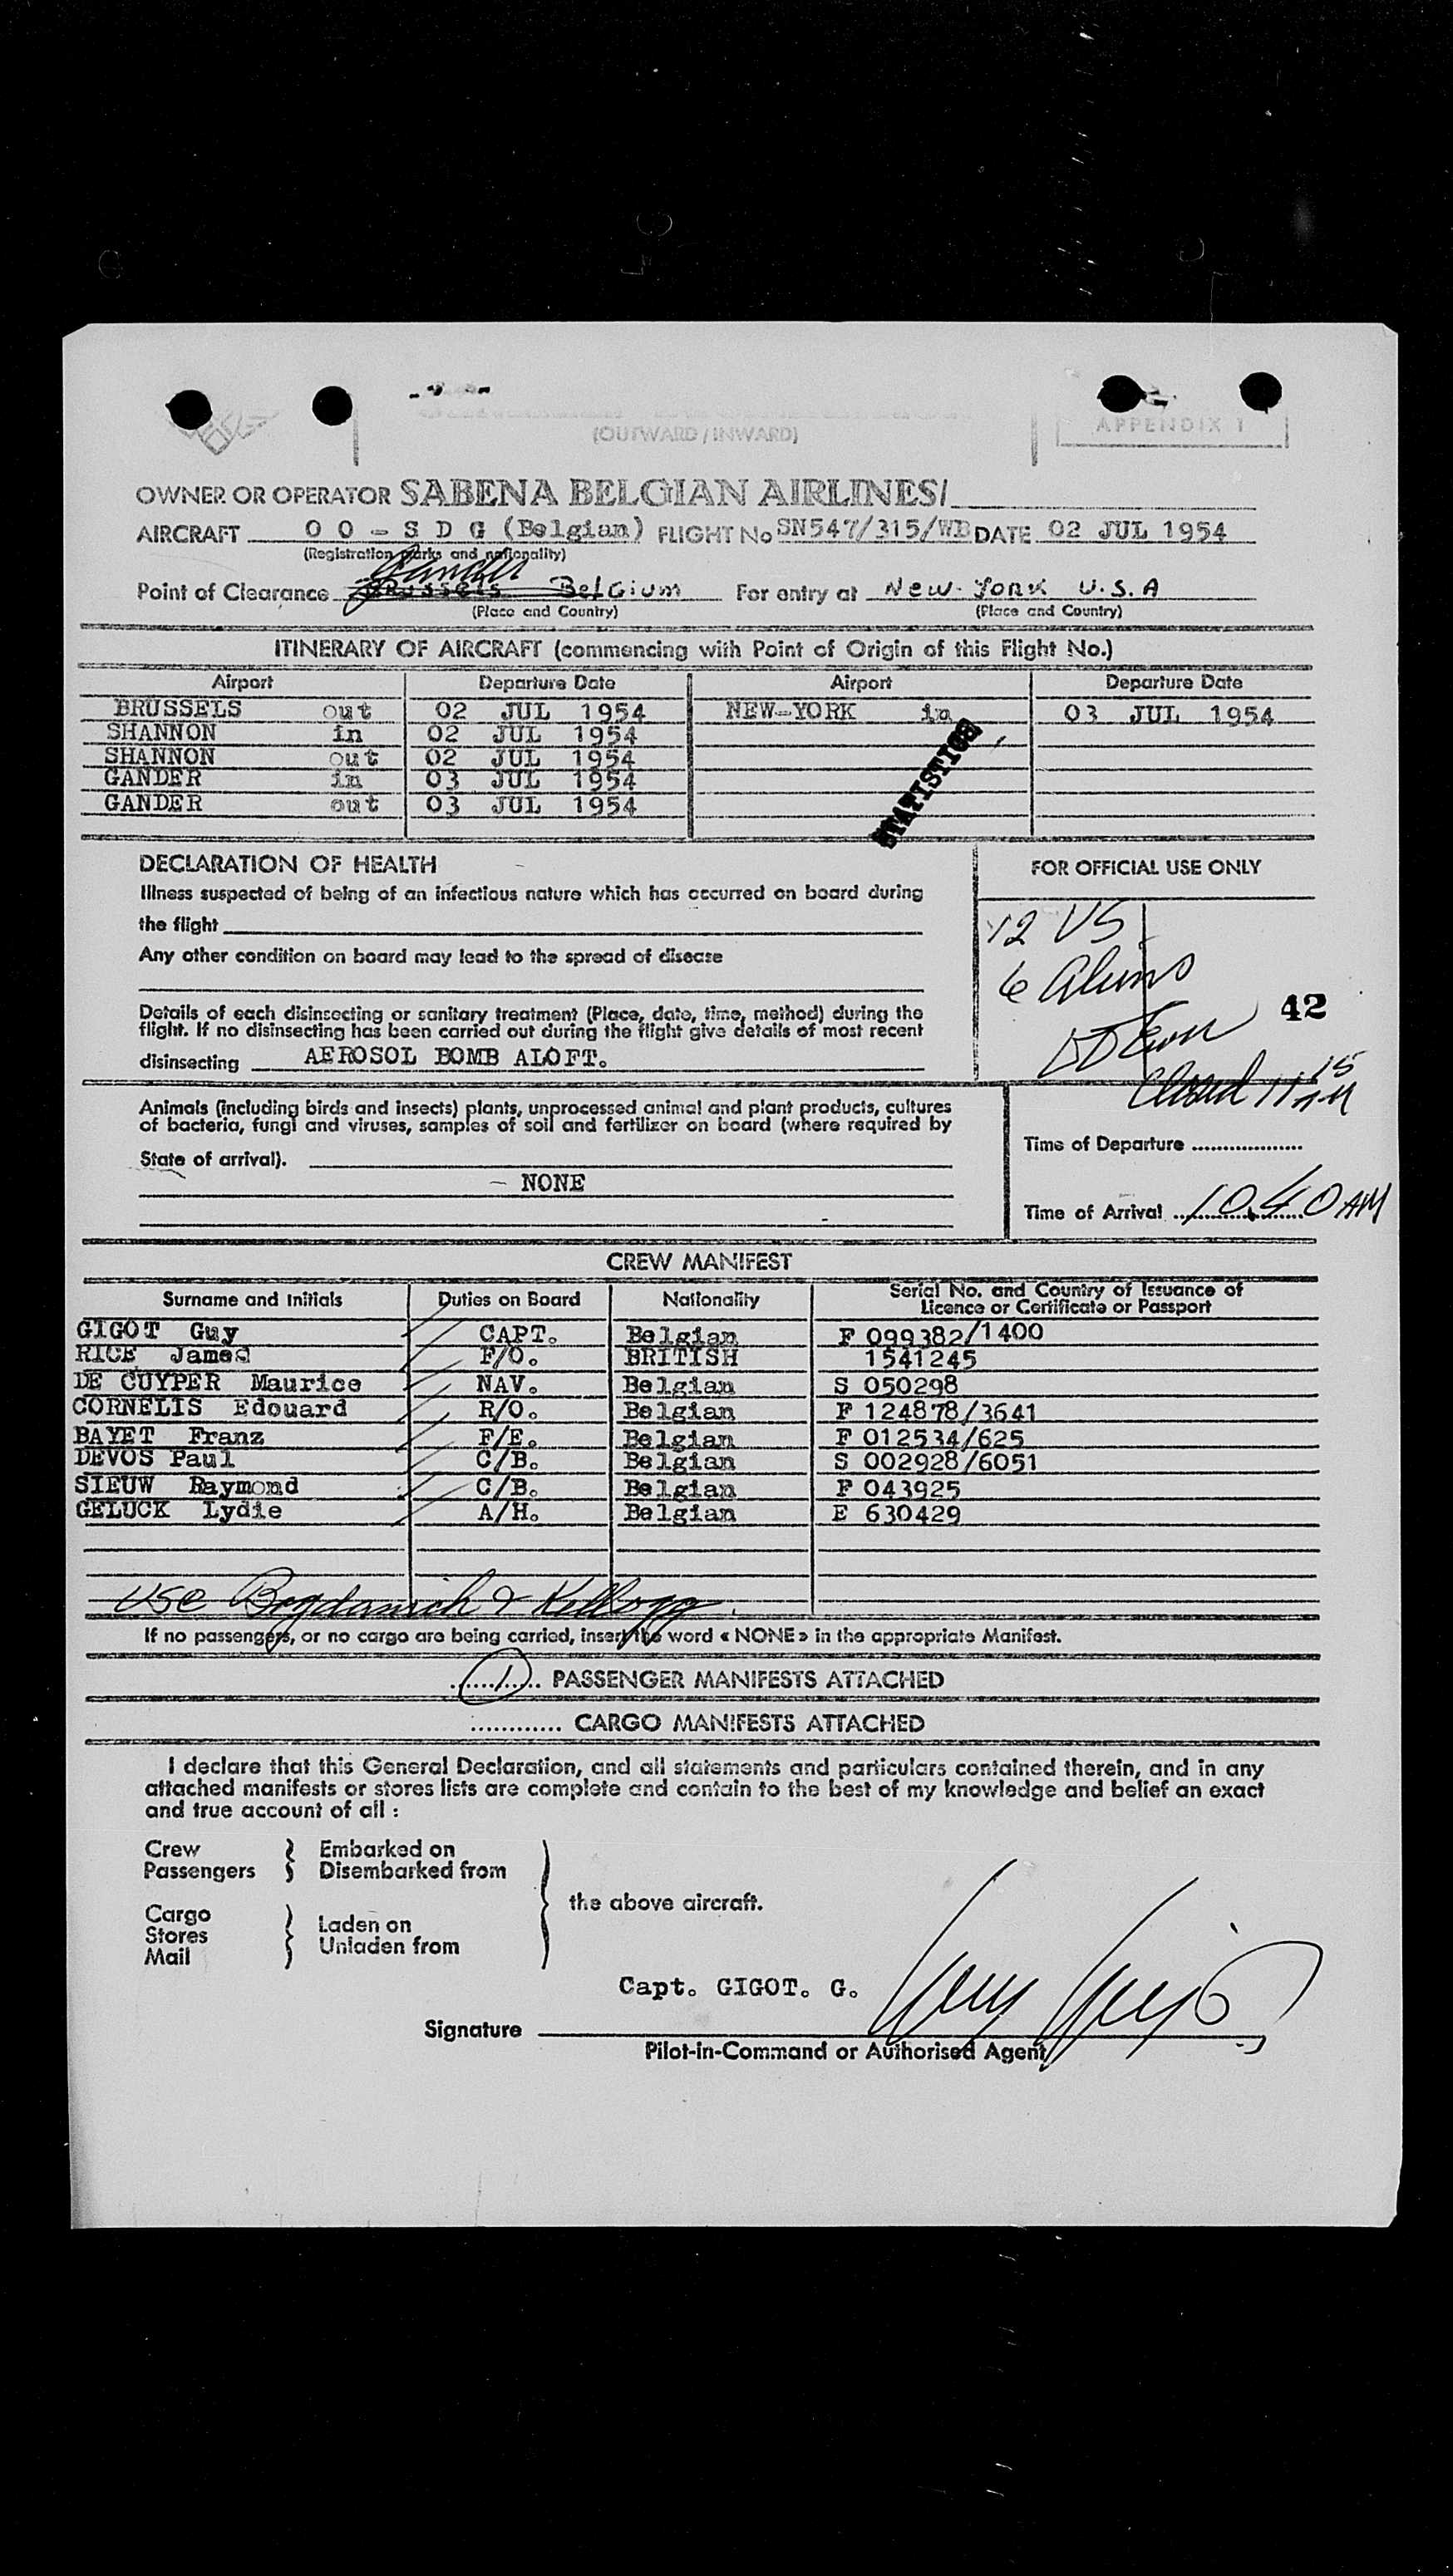 (OUTWARD / INWARD)
APPENDIX 1
OWNER OR OPERATOR SABENA BELGIAN AIRLINES/
AIRCRAFT O O - S D G (Belgian) FLIGHT No SN547/315/WB DATE 02 JUL 1954
(Registration marks and nationality)
Gander
Point of Clearance Brussels Belgium For entry at New-York U.S.A
(Place and Country) (Place and Country)
ITINERARY OF AIRCRAFT (commencing with Point of Origin of this Flight No.)
Airport Departure Date Airport Departure Date
BRUSSELS out 02 JUL 1954 NEW-YORK in 03 JUL 1954
SHANNON in 02 JUL 1954
SHANNON out 02 JUL 1954
GANDER in 03 JUL 1954
GANDER out 03 JUL 1954
STATISTICS
DECLARATION OF HEALTH
Illness suspected of being of an infectious nature which has occurred on board during
the flight
Any other condition on board may lead to the spread of disease
Details of each disinsecting or sanitary treatment (Place, date, time, method) during the
flight. If no disinsecting has been carried out during the flight give details of most recent
disinsecting AEROSOL BOMB ALOFT.
FOR OFFICIAL USE ONLY
12 US
6 Aliens
42
Closed 11 15 AM
Animals (including birds and insects) plants, unprocessed animal and plant products, cultures
of bacteria, fungi and viruses, samples of soil and fertilizer on board (where required by
State of arrival).
- NONE
Time of Departure
Time of Arrival 10.40 AM
CREW MANIFEST
Surname and Initials Duties on Board Nationality Serial No. and Country of Issuance of
Licence or Certificate or Passport
GIGOT Guy CAPT. Belgian F 099382/1400
RICE James F/O. BRITISH 1541245
DE CUYPER Maurice NAV. Belgian S 050298
CORNELIS Edouard R/O. Belgian F 124878/3641
BAYET Franz F/E. Belgian F 012534/625
DEVOS Paul C/B. Belgian S 002928/6051
SIEUW Raymond C/B. Belgian F 043925
GELUCK Lydie A/H. Belgian E 630429
USC Bogdanich & Kellogg
If no passengers, or no cargo are being carried, insert the word « NONE » in the appropriate Manifest.
1 PASSENGER MANIFESTS ATTACHED
............ CARGO MANIFESTS ATTACHED
I declare that this General Declaration, and all statements and particulars contained therein, and in any
attached manifests or stores lists are complete and contain to the best of my knowledge and belief an exact
and true account of all :
Crew Embarked on
Passengers Disembarked from
the above aircraft.
Cargo
Stores Laden on
Mail Unladen from
Capt. GIGOT. G.
Signature
Pilot-in-Command or Authorised Agent